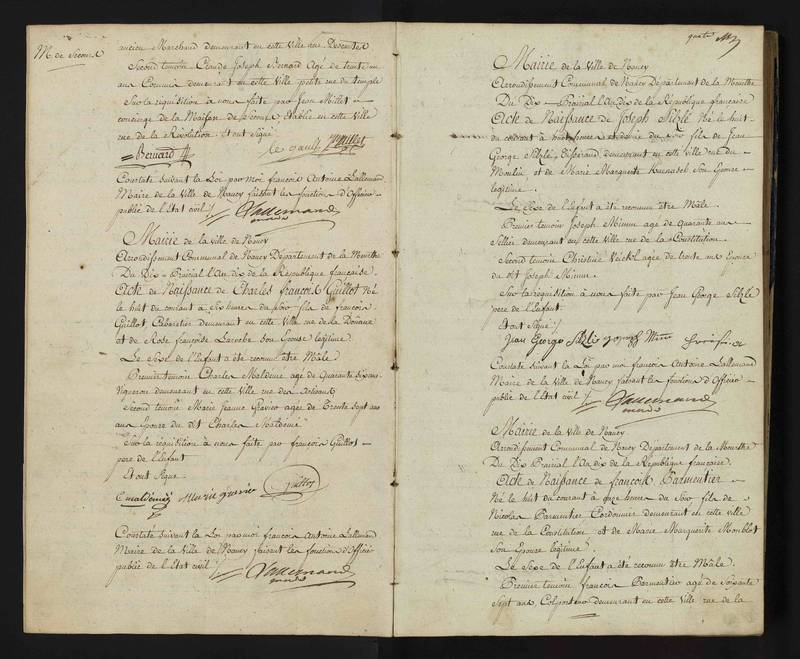 M. de Secours
ancien Marchand demeurant en cette Ville rue Descartes
Second temoin Claude Joseph Bernard agé de trente un
ans Commis demeurant en cette Ville petite rue du temple
Sur la requisition à nous faite par Jean Millet
concierge de la Maison de secours Etablie en cette Ville
rue de la Révolution. Et ont Signé
Bernard J Millet
Constaté suivant la Loi par moi françois Antoine Lallemand
Maire de la Ville de Nancy faisant les fonctions d'Officier
public de l'Etat civil./. Lallemand
maire
Mairie de la Ville de Nancy
Arrondissement Communal de Nancy Département de la Meurthe
Du Dix Prairial l'An dix de la République française.
Acte de Naissance de Charles françois Guillot Né
le huit du courant à Six heures du Soir fils de francois
Guillot Cabaretier demeurant en cette Ville rue de la Douane
et de Rose françoise Laroche Son Epouse légitime.
Le Sexe de l'Enfant a été reconnu être Mâle.
Premier temoin Charles Maldemé agé de Quarante Six ans
Vigneron demeurant en cette Ville rue des Artisans
Second temoin Marie Jeanne Gravier agée de Trente Sept ans
aus Epouse du dit Charles Maldemé
Sur la requisition à nous faite par françois Guillot
pere de l'Enfant
Et ont Signé
C maldemé marie gravier Guillot
Constaté suivant la Loi par moi francois Antoine Lallemand
Maire de la Ville de Nancy faisant les fonctions d'Officier
public de l'Etat civil./. Lallemand
maire
quatre
Mairie de la Ville de Nancy
Arrondissement Communal de Nancy Département de la Meurthe
Du Dix Prairial l'An dix de la République française
Acte de Naissance de Joseph Né le huit
du courant à heures et demie du Soir fils de Jean
George Tisserand demeurant en cette Ville rue du
Moulin et de Marie Marguerite Son Epouse
légitime.
Le Sexe de l'Enfant a été reconnu être Mâle.
Premier temoin Joseph Mimm agé de Quarante ans
Sellier demeurant en cette Ville rue de la Constitution.
Second temoin Christine agée de trente ans Epouse
du dit Joseph Mimm.
Sur la requisition à nous faite par Jean George
pere de l'Enfant.
Et ont Signé./.
Jean George
Constaté suivant la Loi par moi francois Antoine Lallemand
Maire de la Ville de Nancy faisant les fonctions d'Officier
public de l'Etat civil./. Lallemand
maire
Mairie de la Ville de Nancy
Arrondissement Communal de Nancy Département de la Meurthe
Du Dix Prairial l'An dix de la République française.
Acte de Naissance de francois Parmentier
Né le huit du courant à onze heures du Soir fils de
Nicolas Parmentier Cordonnier demeurant en cette Ville
rue de la Constitution et de Marie Marguerite Monblot
Son Epouse légitime.
Le Sexe de l'Enfant a été reconnu être Mâle.
Premier temoin françois Parmentier agé de Soixante
Sept ans Colporteur demeurant en cette Ville rue de la